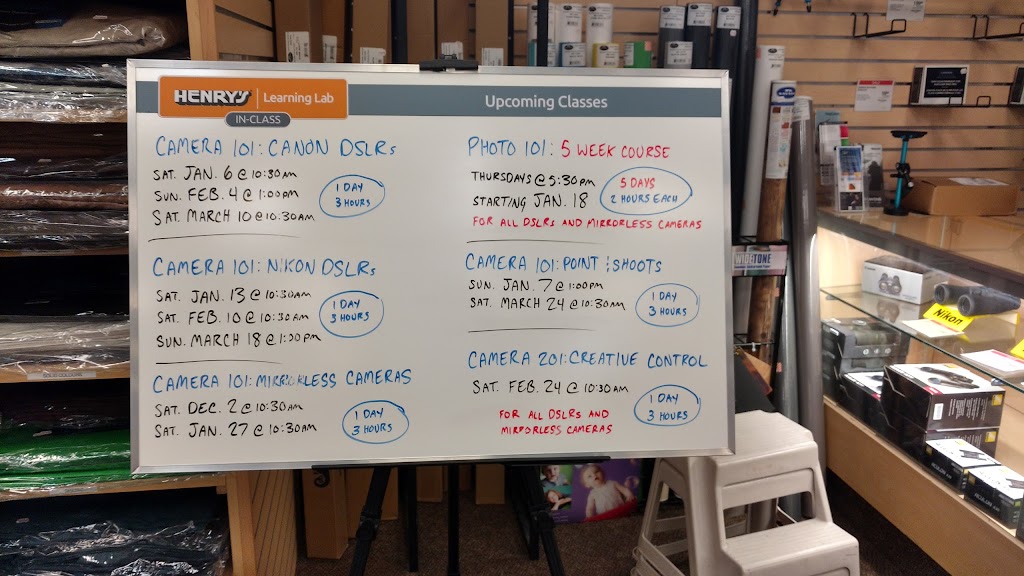 HENRY'S Learning Lab
IN-CLASS
Upcoming Classes
CAMERA 101: CANON DSLRs
SAT. JAN. 6 @ 10:30AM
SUN. FEB. 4 @ 1:00PM
SAT. MARCH 10 @ 10:30AM
1 DAY
3 HOURS
CAMERA 101: NIKON DSLRs
SAT. JAN. 13 @ 10:30AM
SAT. FEB. 10 @ 10:30AM
SUN. MARCH 18 @ 1:00PM
1 DAY
3 HOURS
CAMERA 101: MIRRORLESS CAMERAS
SAT. DEC. 2 @ 10:30AM
SAT. JAN. 27 @ 10:30AM
1 DAY
3 HOURS
PHOTO 101: 5 WEEK COURSE
THURSDAYS @ 5:30PM
STARTING JAN. 18
5 DAYS
2 HOURS EACH
FOR ALL DSLRs AND MIRRORLESS CAMERAS
CAMERA 101: POINT & SHOOTS
SUN. JAN. 7 @ 1:00PM
SAT. MARCH 24 @ 10:30AM
1 DAY
3 HOURS
CAMERA 201: CREATIVE CONTROL
SAT. FEB. 24 @ 10:30AM
1 DAY
3 HOURS
FOR ALL DSLRs AND
MIRRORLESS CAMERAS
Nikon